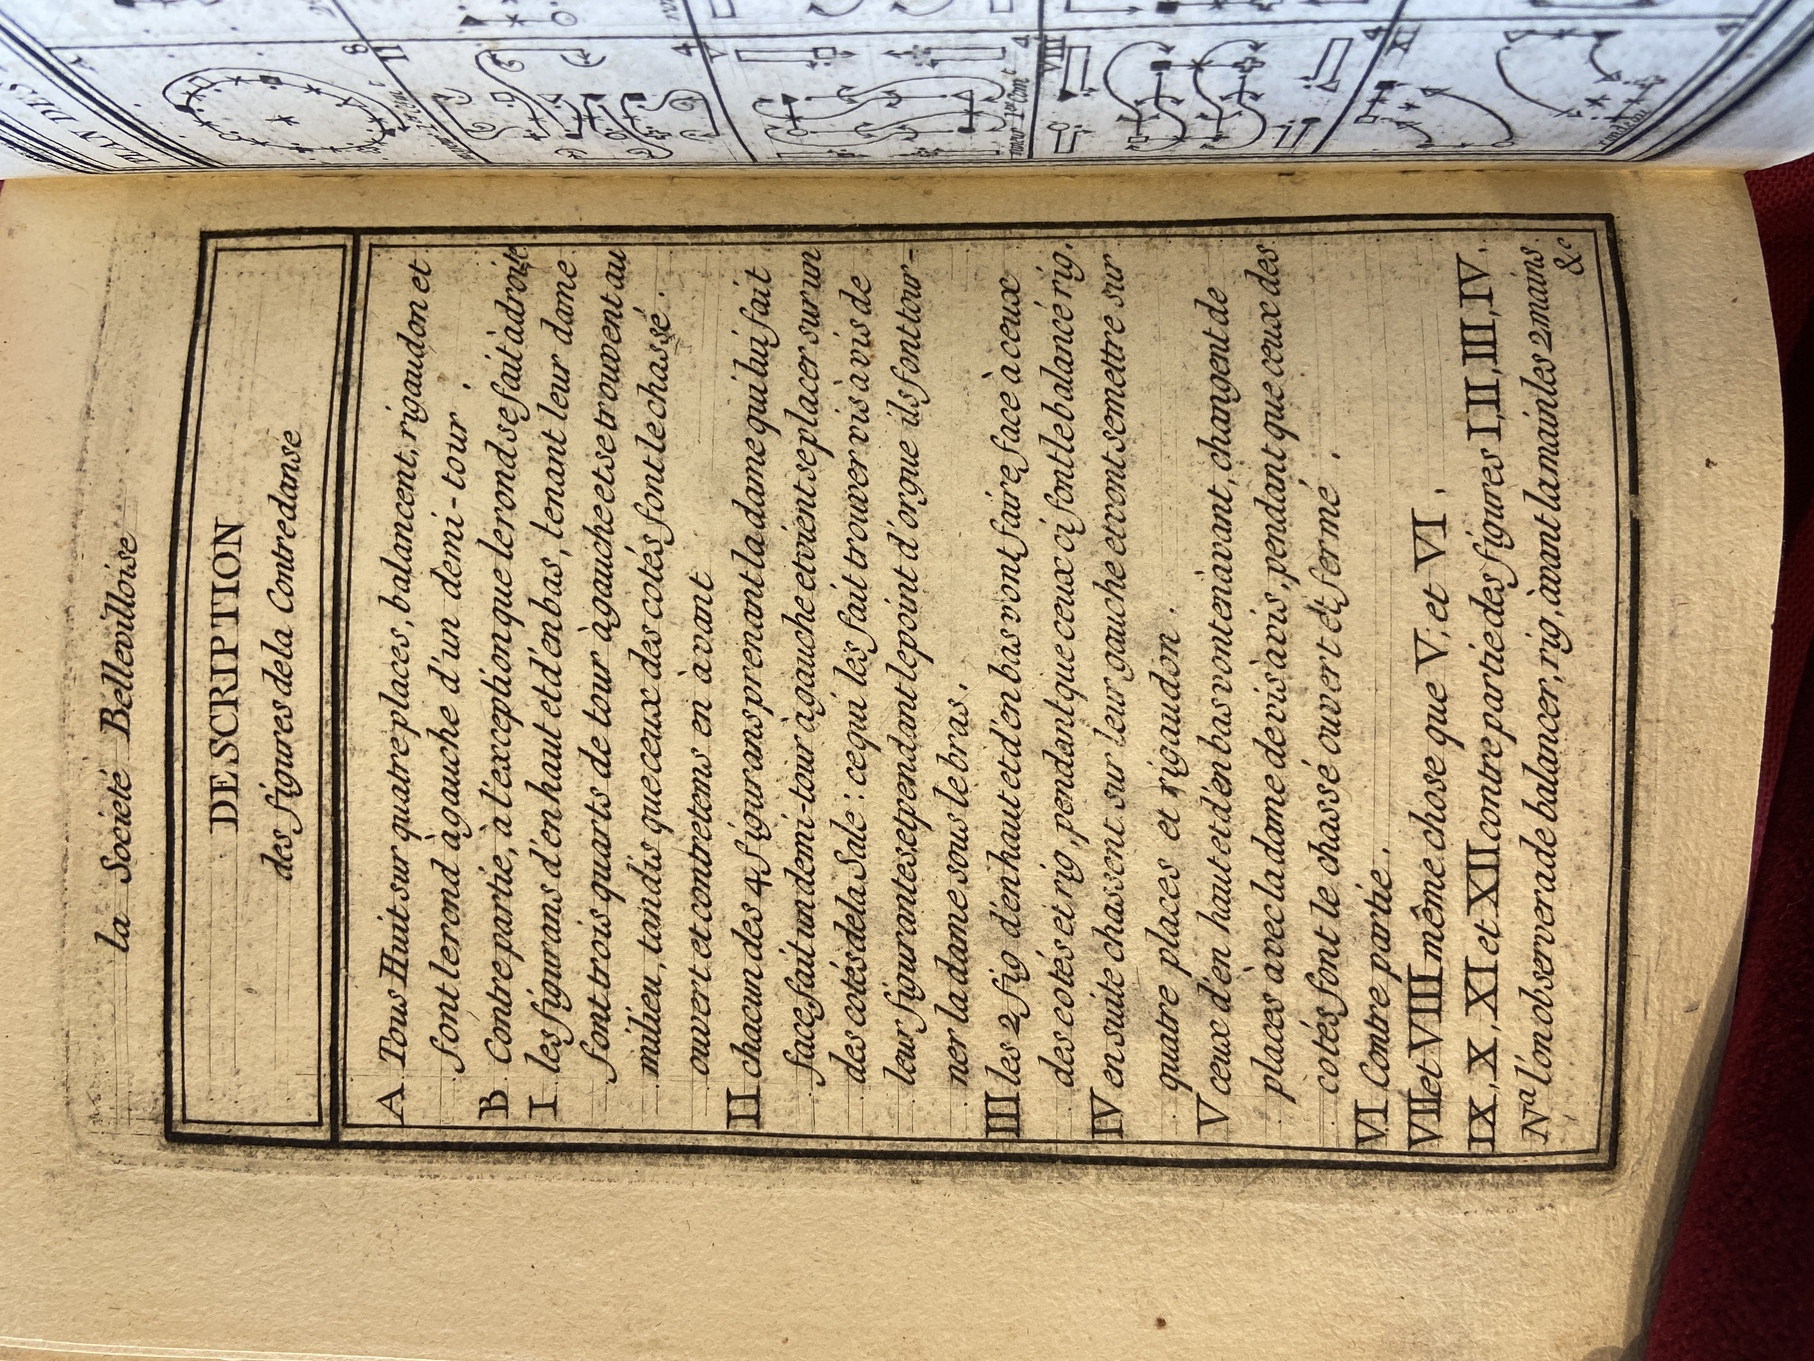 la Societé Bellevilloise
DESCRIPTION
des figures de la Contredanse
A Tous Huit sur quatre places, balancent, rigaudon et
font le rond à gauche d'un demi-tour.
B Contre partie, à l'exception que le rond se fait à droite
I les figurans d'en haut et d'en bas, tenant leur dame
font trois quarts de tour à gauche et se trouvent au
milieu, tandis que ceux des cotés font le chassé.
ouvert et contretems en àvant
II chacun des 4 figurans prenant la dame qui lui fait
face, fait un demi-tour à gauche et vient se placer sur un
des cotés de la Sale: ce qui les fait trouver vis à vis de
leur figurantes, et pendant le point d'orgue ils font tour-
ner la dame sous le bras.
III les 2 fig d'en haut et d'en bas vont faire face à ceux
des cotés et rig, pendant que ceux ci font le balancé rig.
IV en suite chassent sur leur gauche et vont se mettre sur
quatre places et rigaudon.
V ceux d'en haut et d'en bas vont en àvant, changent de
places àvec la dame de vis àvis, pendant que ceux des
cotés font le chassé ouvert et fermé.
VI. Contre partie.
VII et VIII même chose que V, et VI.
IX, X, XI et XII contre partie des figures I, II, III, IV.
Na l'on observera de balancer, rig, àvant la main les 2 mains
&c
PLAN DES
A
8
II
4
V
4
VIII
4
XI
4